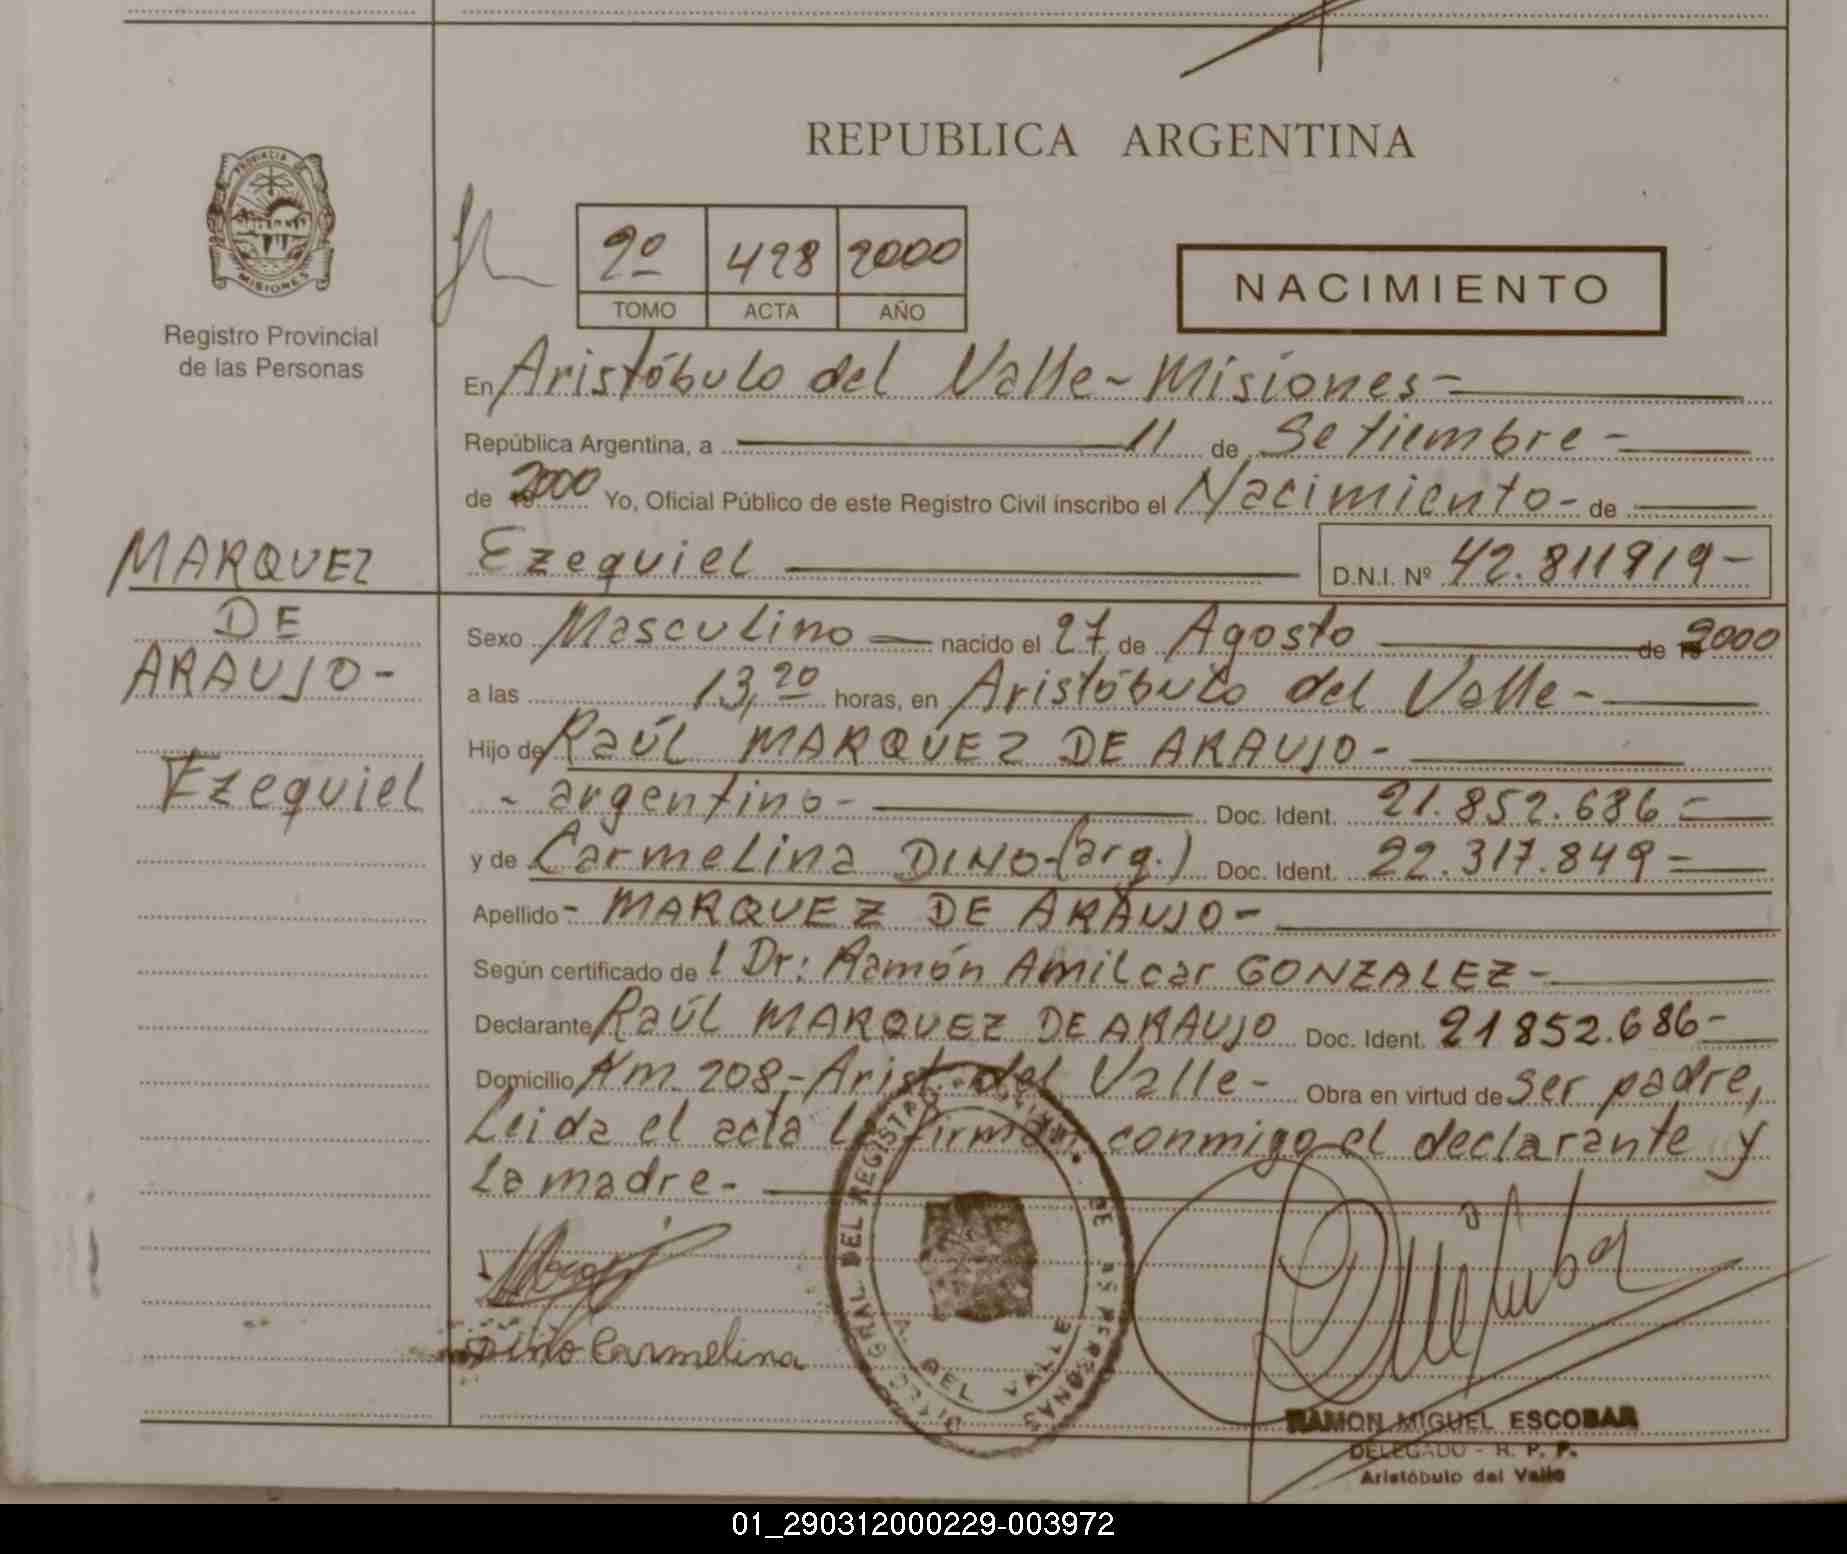 REPUBLICA ARGENTINA
PROVINCIA DE
MISIONES
Registro Provincial
de las Personas
2º 428 2000
TOMO ACTA AÑO
NACIMIENTO
En Aristóbulo del Valle - Misiones -
República Argentina, a 11 de Setiembre -
de 2000 Yo, Oficial Público de este Registro Civil inscribo el Nacimiento - de
Ezequiel D.N.I. Nº 42.811919 -
MARQUEZ
DE
ARAUJO -
Ezequiel
Sexo Masculino nacido el 27 de Agosto de 2000
a las 13,20 horas, en Aristóbulo del Valle -
Hijo de Raúl MARQUEZ DE ARAUJO -
- argentino - Doc. Ident. 21.852.686 -
y de Carmelina DINO - (arg.) Doc. Ident. 22.317.849 -
Apellido - MARQUEZ DE ARAUJO -
Según certificado de l Dr: Ramón Amilcar GONZALEZ -
Declarante Raúl MARQUEZ DE ARAUJO Doc. Ident. 21852.686 -
Domicilio Km. 208 - Arist. del Valle - Obra en virtud de ser padre,
Leida el acta la firman conmigo el declarante y
la madre -
Dino Carmelina
DIREC. GRAL. DEL REGISTRO DE LAS PERSONAS
A. DEL VALLE
RAMON MIGUEL ESCOBAR
DELEGADO - R. P. P.
Aristóbulo del Valle
01_290312000229-003972